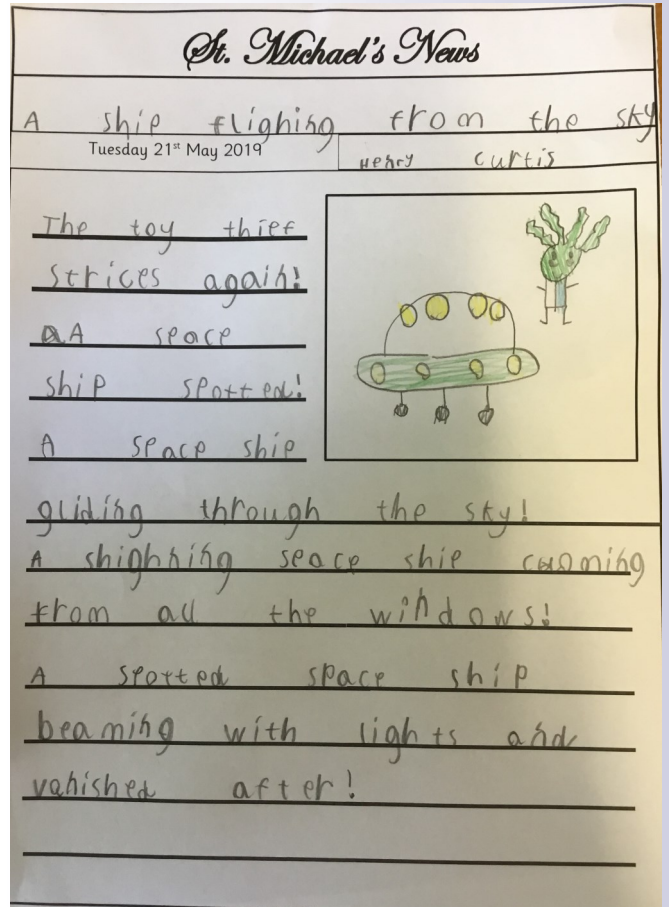 St. Michael's News
A ship flighing from the sky
Tuesday 21st May 2019
Henry Curtis
The toy thief
strices again!
A space
ship spotted!
A space ship
gliding through the sky!
A shighning space ship cuoming
from all the windows!
A spotted space ship
beaming with lights and
vanished after!